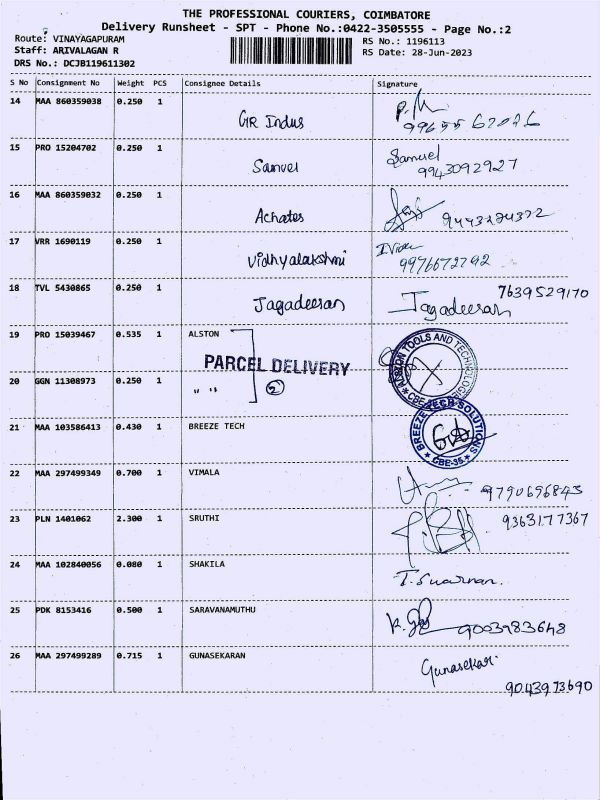 THE PROFESSIONAL COURIERS, COIMBATORE
Delivery Runsheet - SPT - Phone No.:0422-3505555 - Page No.:2
Route: VINAYAGAPURAM
Staff: ARIVALAGAN R
DRS No.: DCJB119611302
RS No.: 1196113
RS Date: 28-Jun-2023
S No Consignment No Weight PCS Consignee Details Signature
14 MAA 860359038 0.250 1 GR Indus
15 PRO 15204702 0.250 1 Samuel Samuel 9943092927
16 MAA 860359032 0.250 1 Achates
17 VRR 1690119 0.250 1 Vidhyalakshmi 9976672792
18 TVL 5430865 0.250 1 Jagadeesan Jagadeesan 7639529170
19 PRO 15039467 0.535 1 ALSTON
PARCEL DELIVERY
20 GGN 11308973 0.250 1 " " 2
21 MAA 103586413 0.430 1 BREEZE TECH BREEZE TECH SOLUTIONS CBE-35
22 MAA 297499349 0.700 1 VIMALA 9790696843
23 PLN 1401062 2.300 1 SRUTHI 9363177367
24 MAA 102840056 0.080 1 SHAKILA
25 PDK 8153416 0.500 1 SARAVANAMUTHU 9003983648
26 MAA 297499289 0.715 1 GUNASEKARAN Gunasekar
9043973690